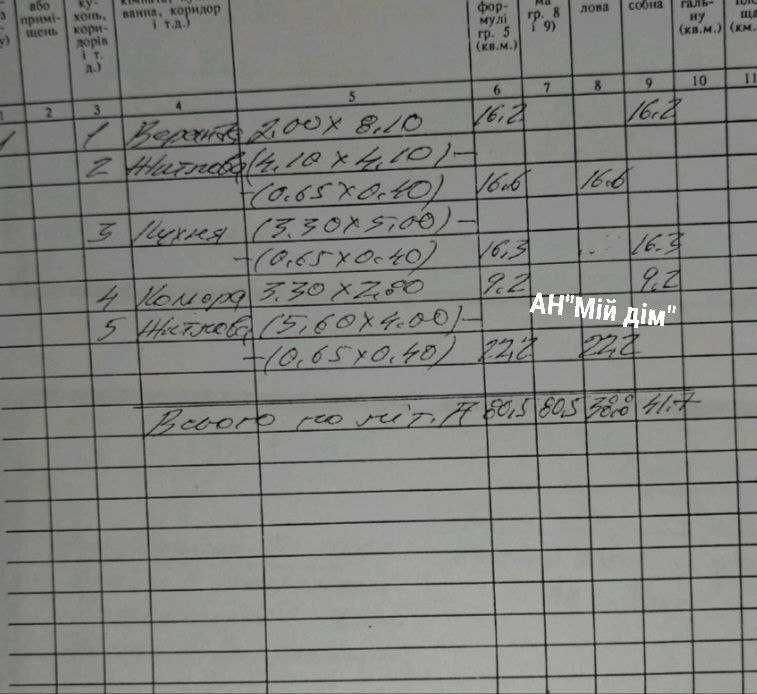 або примі- щень
ку- хонь, кори- дорів і т. д.)
ванна, коридор і т.д.)
фор- мулі гр. 5 (кв.м.)
ма гр. 8 і 9)
лова
собна
галь- ну (кв.м.)
ща (км.
1 2 3 4 5 6 7 8 9 10 11
1 1 Веранда 2,00 x 8,10 16,2 16,2
2 Житлова (4,10 x 4,10) -
- (0,65 x 0,40) 16,6 16,6
3 Кухня (3.30 x 5,00) -
- (0,65 x 0,40) 16,3 16.3
4 Комора 3.30 x 2,80 9,2 9,2
АН"Мій дім"
5 Житлова (5,60 x 4,00) -
- (0,65 x 0,40) 22,2 22,2
Всього по літ. А 80,5 80,5 38,8 41.7